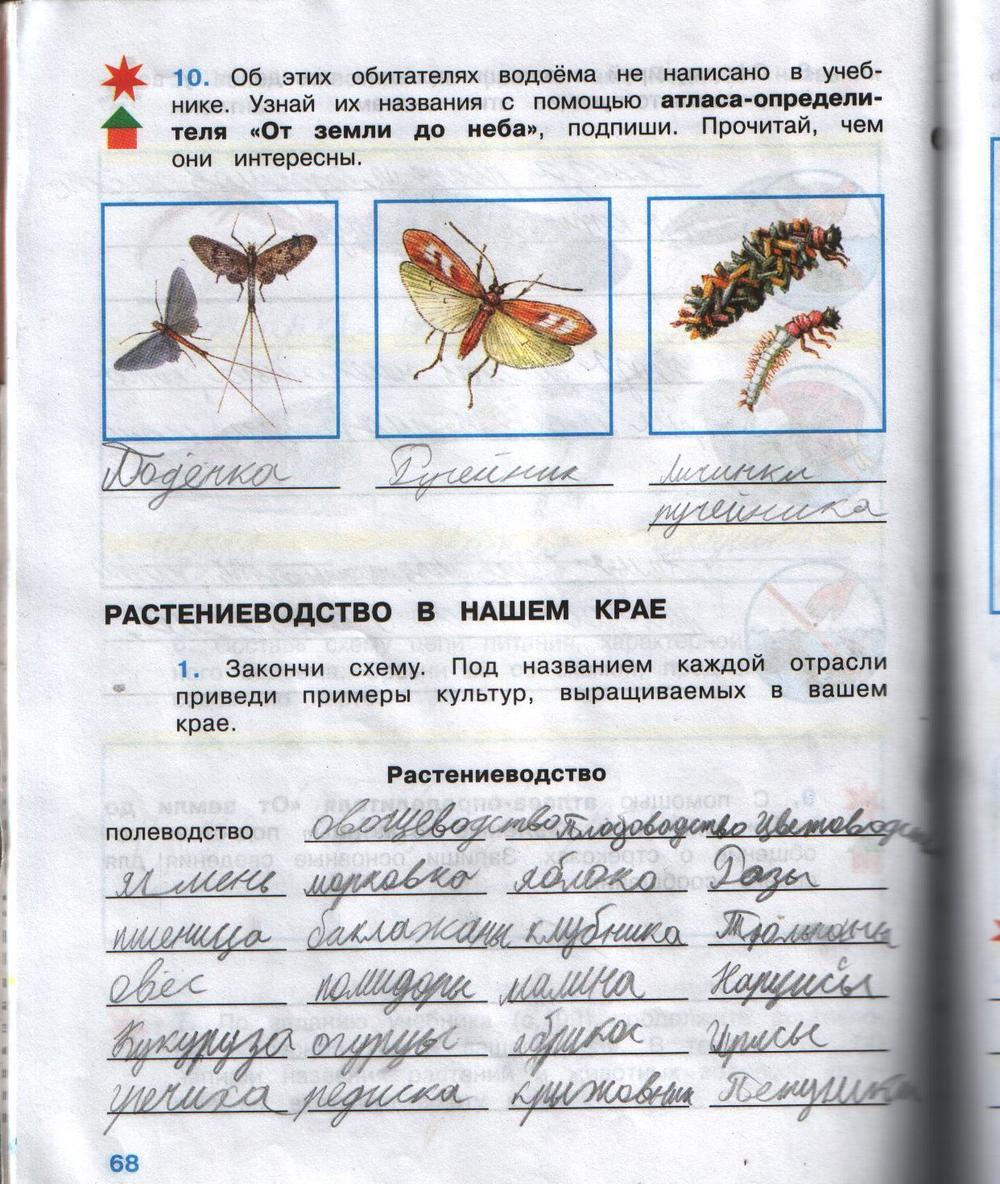 10. Об этих обитателях водоёма не написано в учеб-
нике. Узнай их названия с помощью атласа-определи-
теля «От земли до неба», подпиши. Прочитай, чем
они интересны.
Подёнка Ручейник личинки
ручейника
РАСТЕНИЕВОДСТВО В НАШЕМ КРАЕ
1. Закончи схему. Под названием каждой отрасли
приведи примеры культур, выращиваемых в вашем
крае.
Растениеводство
полеводство овощеводство Плодоводство Цветоводст
ячмень морковка яблоко Розы
пшеница баклажаны клубника Тюльпаны
овёс помидоры малина Нарцисы
Кукуруза огурцы абрикос Ирисы
гречиха редиска крыжовник Петушки
68